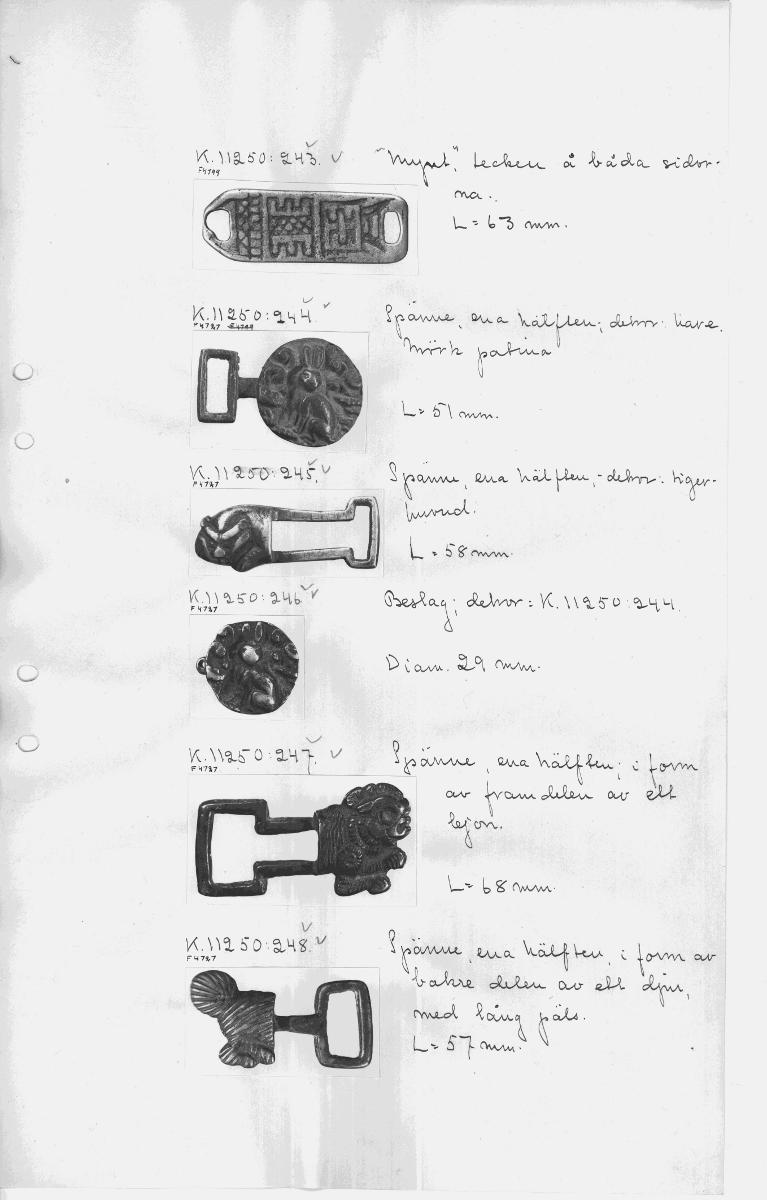 K.11250:243. "Mynt", tecken å båda sidor-
F4799
na.
L = 63 mm.
K.11250:244. Spänne, ena hälften; dekor: hare.
F4727
Mörk patina
L = 51 mm.
K.11250:245. Spänne, ena hälften, - dekor: tiger-
F4727
huvud.
L = 58 mm.
K.11250:246 Beslag; dekor = K.11250:244.
F4727
Diam. 29 mm.
K.11250:247. Spänne, ena hälften; i form
F4727
av framdelen av ett
lejon.
L = 68 mm.
K.11250:248. Spänne, ena hälften, i form av
F4727
bakre delen av ett djur,
med lång päls.
L = 57 mm.